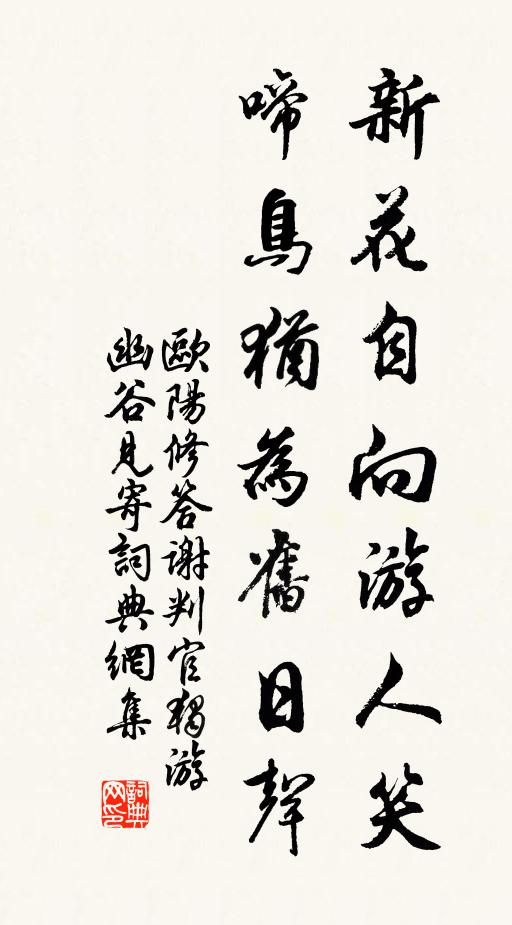 新花自向游人笑
啼鳥猶為舊日聲
歐陽修答謝判官獨游
幽谷見寄詞典網集
詞典网印